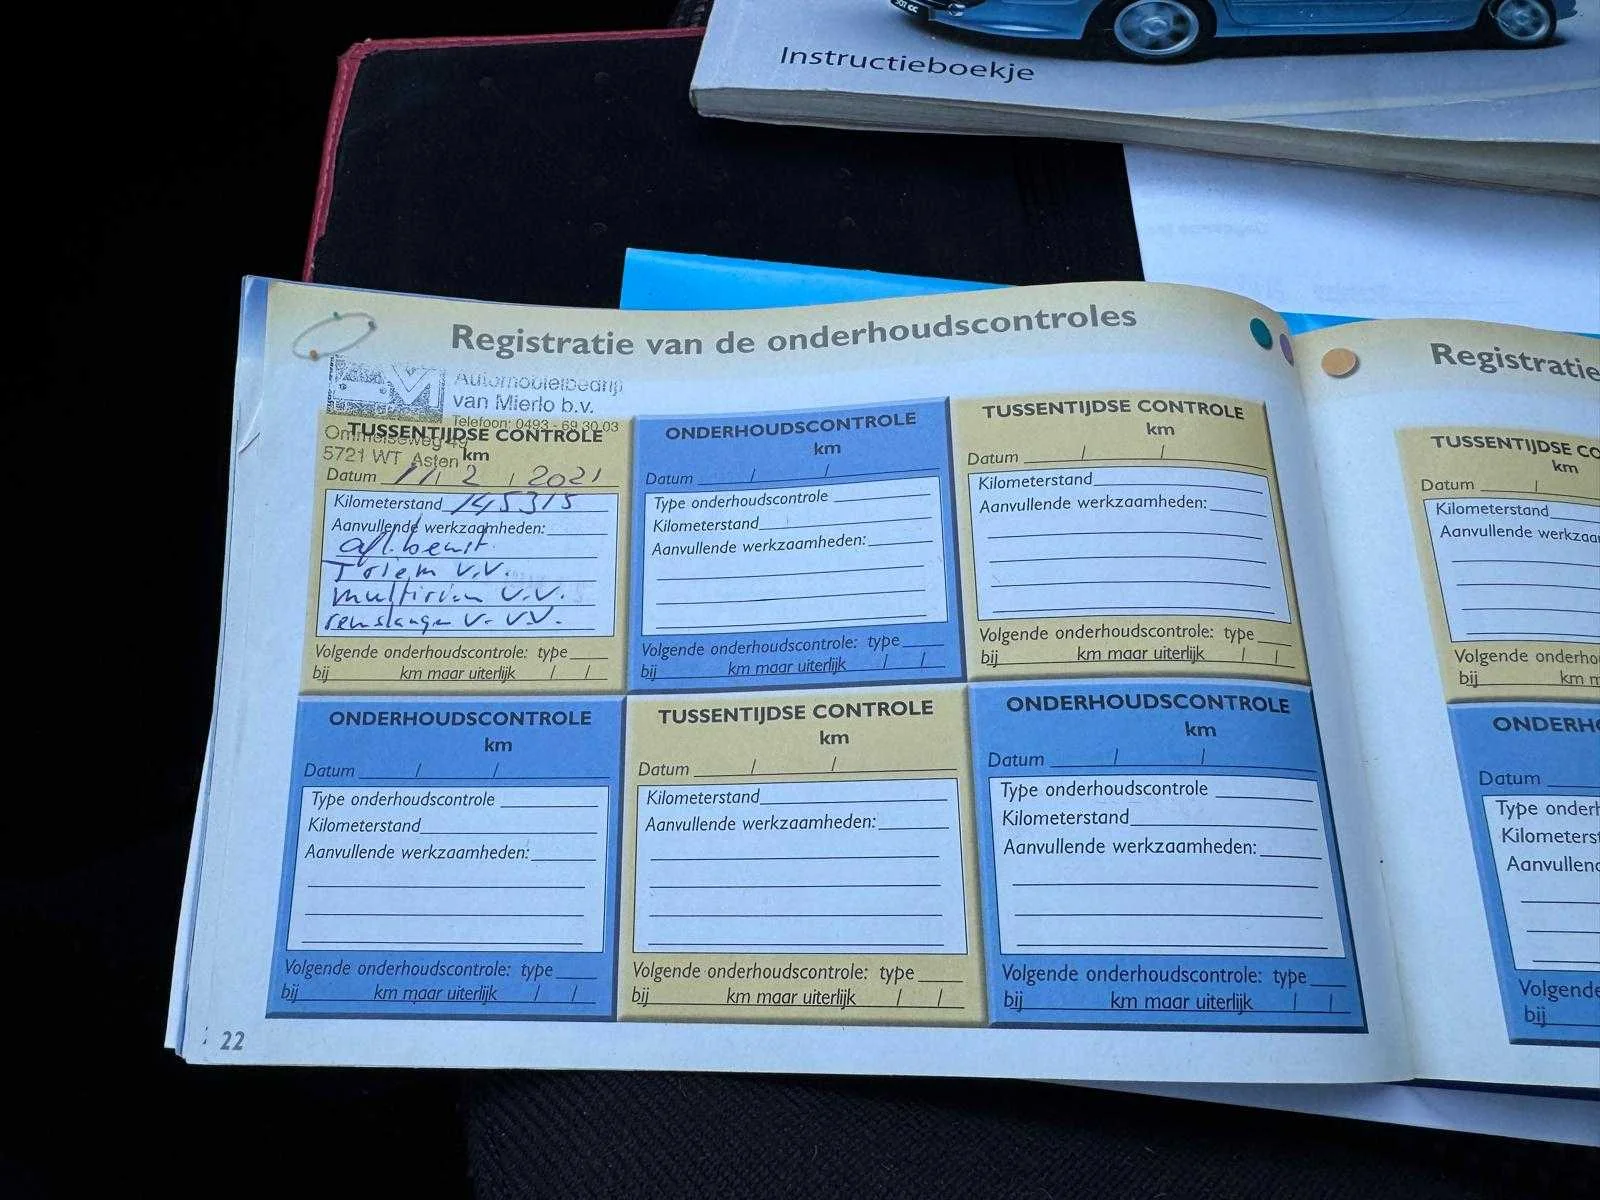 307 CC
Instructieboekje
Registratie van de onderhoudscontroles
Automobielbedrijf
van Mierlo b.v.
Telefoon: 0493 - 69 30 03
Ommelseweg 49
5721 WT Asten
TUSSENTIJDSE CONTROLE
km
Datum 11 / 2 / 2021
Kilometerstand 145315
Aanvullende werkzaamheden:
afl. beurt.
Triem v.v.
multiriem v.v.
remslangen v. v.v.
Volgende onderhoudscontrole: type
bij km maar uiterlijk / /
ONDERHOUDSCONTROLE
km
Datum / /
Type onderhoudscontrole
Kilometerstand
Aanvullende werkzaamheden:
Volgende onderhoudscontrole: type
bij km maar uiterlijk / /
TUSSENTIJDSE CONTROLE
km
Datum / /
Kilometerstand
Aanvullende werkzaamheden:
Volgende onderhoudscontrole: type
bij km maar uiterlijk / /
ONDERHOUDSCONTROLE
km
Datum / /
Type onderhoudscontrole
Kilometerstand
Aanvullende werkzaamheden:
Volgende onderhoudscontrole: type
bij km maar uiterlijk / /
TUSSENTIJDSE CONTROLE
km
Datum / /
Kilometerstand
Aanvullende werkzaamheden:
Volgende onderhoudscontrole: type
bij km maar uiterlijk / /
ONDERHOUDSCONTROLE
km
Datum / /
Type onderhoudscontrole
Kilometerstand
Aanvullende werkzaamheden:
Volgende onderhoudscontrole: type
bij km maar uiterlijk / /
22
Registratie
TUSSENTIJDSE CO
km
Datum /
Kilometerstand
Aanvullende werkzaa
Volgende onderho
bij km m
ONDERHO
Datum
Type onderh
Kilometers
Aanvullend
Volgende
bij